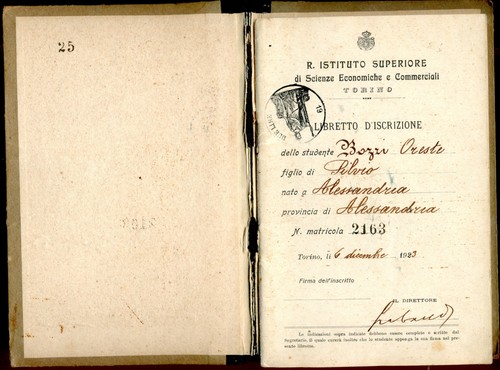 25
R. ISTITUTO SUPERIORE
di Scienze Economiche e Commerciali
TORINO
LIBRETTO D'ISCRIZIONE
dello studente Bozzi Oreste
figlio di Silvio
nato a Alessandria
provincia di Alessandria
N. matricola 2163
Torino, li 6 dicembre 1923
Firma dell'inscritto
IL DIRETTORE
Le indicazioni sopra indicate devono essere complete e scritte dal
Segretario. Il quale curerà inoltre che lo studente apponga la sua firma nel pre-
sente libretto.